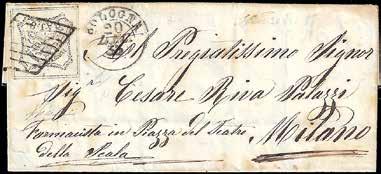 BOLOGNA
20
Al Pregiatissimo Signor
Sigr Cesare Riva Palazzi
Farmacista in Piazza del Teatro
della Scala
Milano